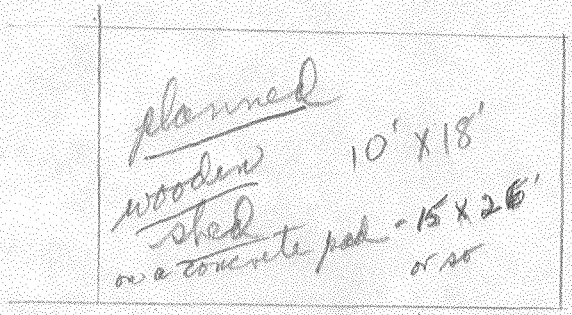 planned
wooden 10' X 18'
shed
on a concrete pad - 15 X 2
or so